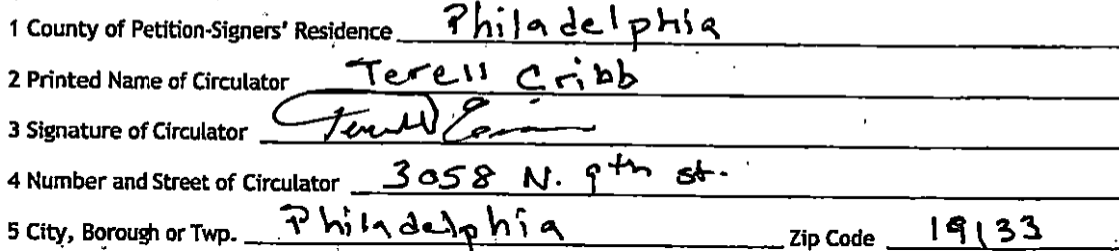 1 County of Petition-Signers' Residence Philadelphia
2 Printed Name of Circulator Terell Cribb
3 Signature of Circulator Terell
4 Number and Street of Circulator 3058 N. 9th st.
5 City, Borough or Twp. Philadelphia Zip Code 19133